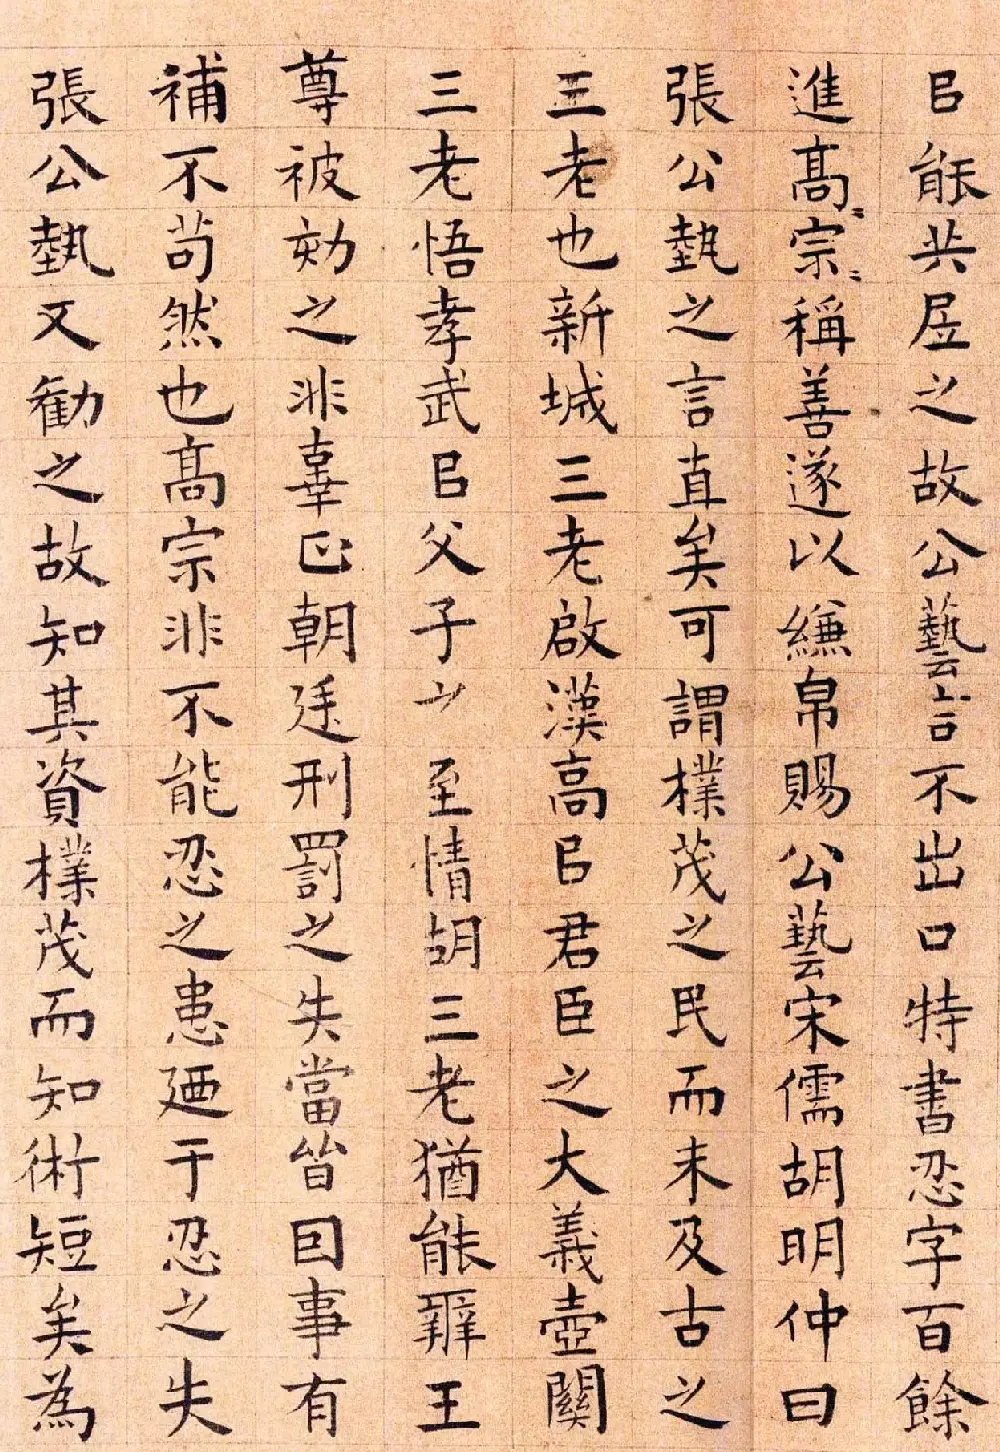 㠯能共居之故公藝言不出口特書忍字百餘
進高〻宗〻稱善遂以縑帛賜公藝宋儒胡明仲曰
張公埶之言直矣可謂樸茂之民而未及古之
三老也新城三老啟漢高㠯君臣之大義壺關
三老悟孝武㠯父子之至情胡三老猶能辨王
尊被劾之非辜正朝廷刑罰之失當皆囙事有
補不苟然也高宗非不能忍之患廼于忍之失
張公埶又勸之故知其資樸茂而知術短矣為